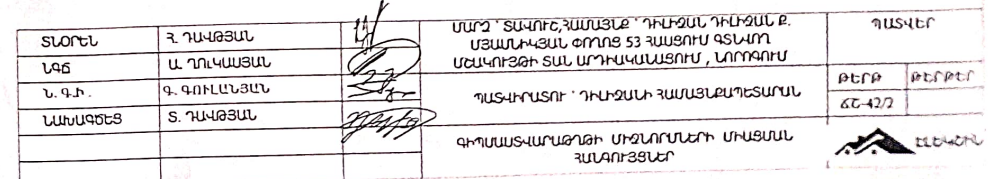 ՏՆՕՐԵՆ Հ. ԴԱՎԹՅԱՆ
ՆԳՃ Ա. ՂՈՒԿԱՍՅԱՆ
Ն. Գ. Ի. Գ. ԳՈՒԼԱՆՅԱՆ
ՆԱԽԱԳԾԵՑ Տ. ԴԱՎԹՅԱՆ
ՄԱՐԶ ՝ ՏԱՎՈՒՇ,ՀԱՄԱՅՆՔ ՝ ԴԻԼԻՋԱՆ ԴԻԼԻՋԱՆ Ք.
ՄՅԱՍՆԻԿՅԱՆ ՓՈՂՈՑ 53 ՀԱՍՑՈՒՄ ԳՏՆՎՈՂ
ՄՇԱԿՈՒՅԹԻ ՏԱՆ ԱՐԴԻԱԿԱՆԱՑՈՒՄ , ՆՈՐՈԳՈՒՄ
ՊԱՏՎԻՐԱՏՈՒ ՝ ԴԻԼԻՋԱՆԻ ՀԱՄԱՅՆՔԱՊԵՏԱՐԱՆ
ԳԻՊՍԱՍՏՎԱՐԱԹՂԹԻ ՄԻՋՆՈՐՄՆԵՐԻ ՄԻԱՑՄԱՆ
ՀԱՆԳՈՒՅՑՆԵՐ
ՊԱՏՎԵՐ
ԹԵՐԹ ԹԵՐԹԵՐ
ՃՇ-42/2
ԷԼԵԿՇԻՆ